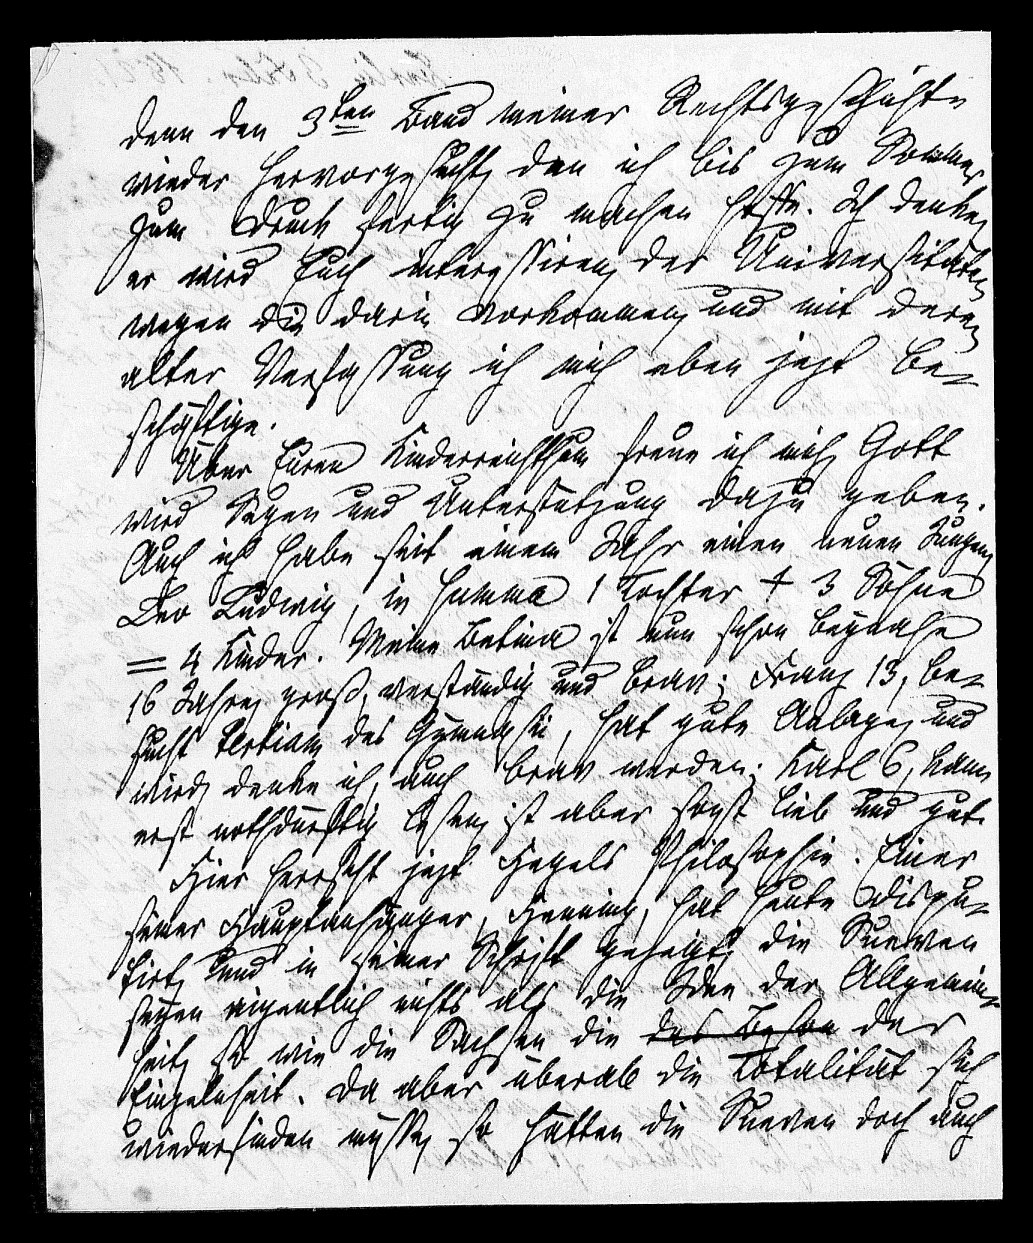 denn den 3ten Band meiner Rechtsgeschichte
wieder hervorgesucht, den ich bis zum Sommer
zum Druck fertig zu machen hoffe. Ich denke,
er wird Euch interessiren, der Universitäten
wegen die darin vorkommen, und mit deren
alter Verfassung ich mich eben jezt be-
schäftige.
Über Euren Kinderreichthum freue ich mich, Gott
wird Segen und Unterstützung dazu geben.
Auch ich habe seit einem Jahr einen neuen Jungen,
Leo Ludwig, in Summa 1 Tochter + 3 Söhne
= 4 Kinder. Meine Betina ist nun schon beynahe
16 Jahre, groß, verständig und brav; Franz 13, be-
sucht Tertiam des Gymnasii, hat gute Anlagen, und
wird, denke ich, auch brav werden; Karl 6, kann
erst nothdürftig lesen, ist aber sonst lieb und gut.
Hier herrscht jezt Hegels Philosophie. Einer
seiner Hauptanhänger, Henning, hat heute dispu-
tirt, und in seiner Schrift gezeigt, die Sueven
seyen eigentlich nichts als die Idee der Allgemein-
heit, so wie die Sachsen die der
Einzelnheit. Da aber überall die Totalität sich
wiederfinden müsse, so hätten die Sueven doch auch